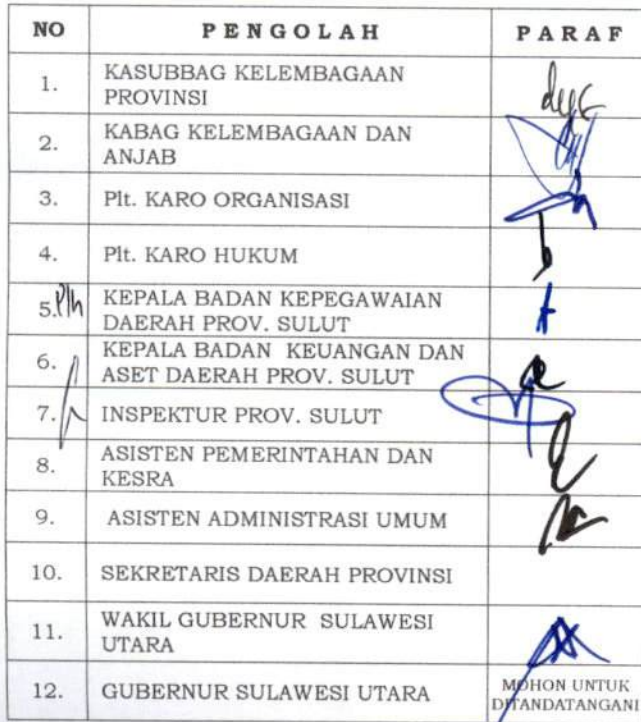 NO PENGOLAH PARAF
1. KASUBBAG KELEMBAGAAN
PROVINSI
2. KABAG KELEMBAGAAN DAN
ANJAB
3. Plt. KARO ORGANISASI
4. Plt. KARO HUKUM
5. Plh KEPALA BADAN KEPEGAWAIAN
DAERAH PROV. SULUT
6. KEPALA BADAN KEUANGAN DAN
ASET DAERAH PROV. SULUT
7. INSPEKTUR PROV. SULUT
8. ASISTEN PEMERINTAHAN DAN
KESRA
9. ASISTEN ADMINISTRASI UMUM
10. SEKRETARIS DAERAH PROVINSI
11. WAKIL GUBERNUR SULAWESI
UTARA
12. GUBERNUR SULAWESI UTARA MOHON UNTUK
DITANDATANGANI